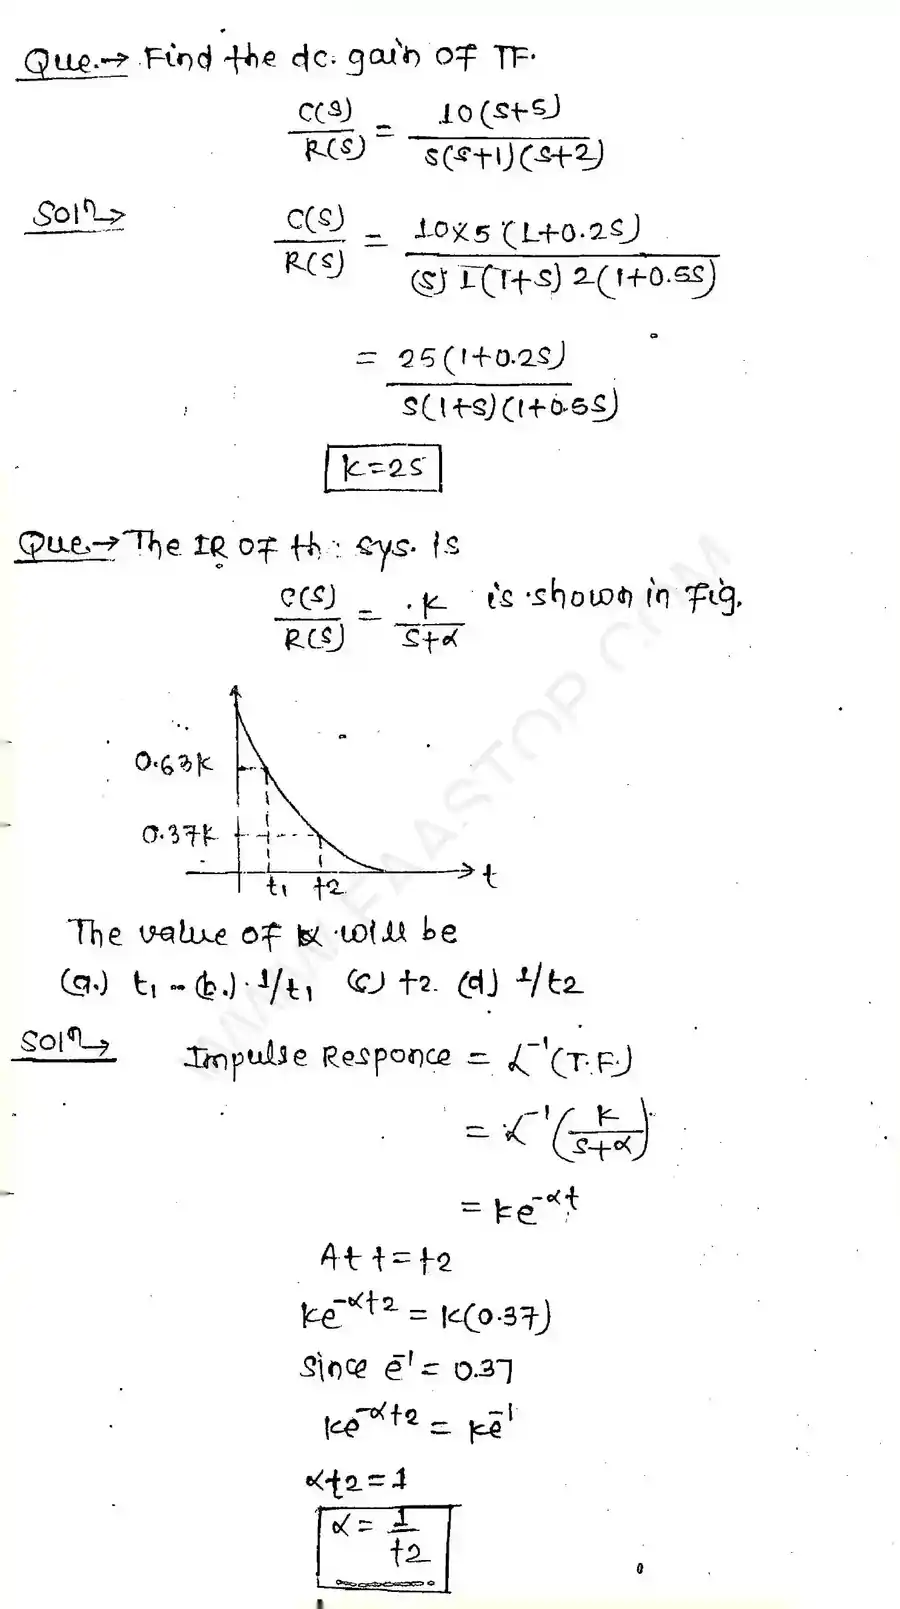 Que.→ Find the dc. gain of TF.
C(s)/R(s) = 10(s+5)/s(s+1)(s+2)
Solⁿ→ C(s)/R(s) = 10×5 (1+0.2s)/(s) 1(1+s) 2(1+0.5s)
= 25(1+0.2s)/s(1+s)(1+0.5s)
k=25
Que.→ The IR of th: sys. is
C(s)/R(s) = k/s+α is shown in fig.
0.63k
0.37k
t1 t2 t
The value of α will be
(a.) t1 (b.) 1/t1 (c) t2. (d) 1/t2
Solⁿ→ Impulse Responce = L⁻¹(T.F.)
= L⁻¹(k/s+α)
= ke^-αt
At t=t2
ke^-αt2 = k(0.37)
since e⁻¹ = 0.37
ke^-αt2 = ke⁻¹
αt2=1
α = 1/t2
WWW.FAASTOP.COM